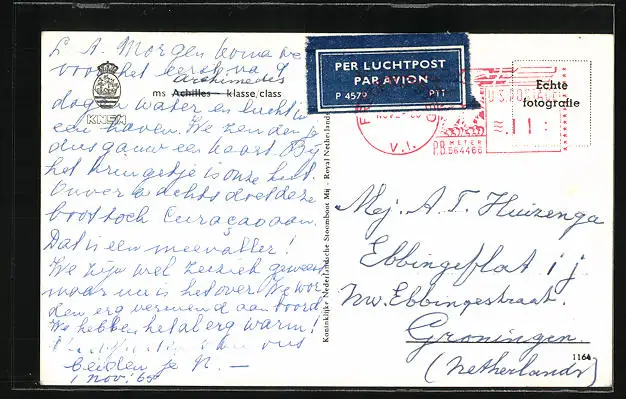 L. A. Morgen komen we
voor het eerst na 9
Archimedes
ms Achilles klasse/class
KNSM
dagen water en lucht in
een haven. We zenden je
dus gauw een kaart. Bij
het kringetje is onze hut.
Onverwachts doet deze
boot toch Curaçao aan.
Dat is een meevaller!
We zijn wel zeeziek geweest
maar nu is het over. We wor
den erg verwend aan boord.
We hebben het al erg warm!
ons
beiden je N. —
1 Nov. '65
Koninklijke Nederlandsche Stoomboot Mij - Royal Netherlands
PER LUCHTPOST
PAR AVION
P 4579 PTT
V.I.
U.S. POSTAGE
.11
P.B. METER
564466
Echte
fotografie
Mej. A. T. Huizenga
Ebbingeflat ij
Nw. Ebbingestraat.
Groningen.
(Netherlands)
1164